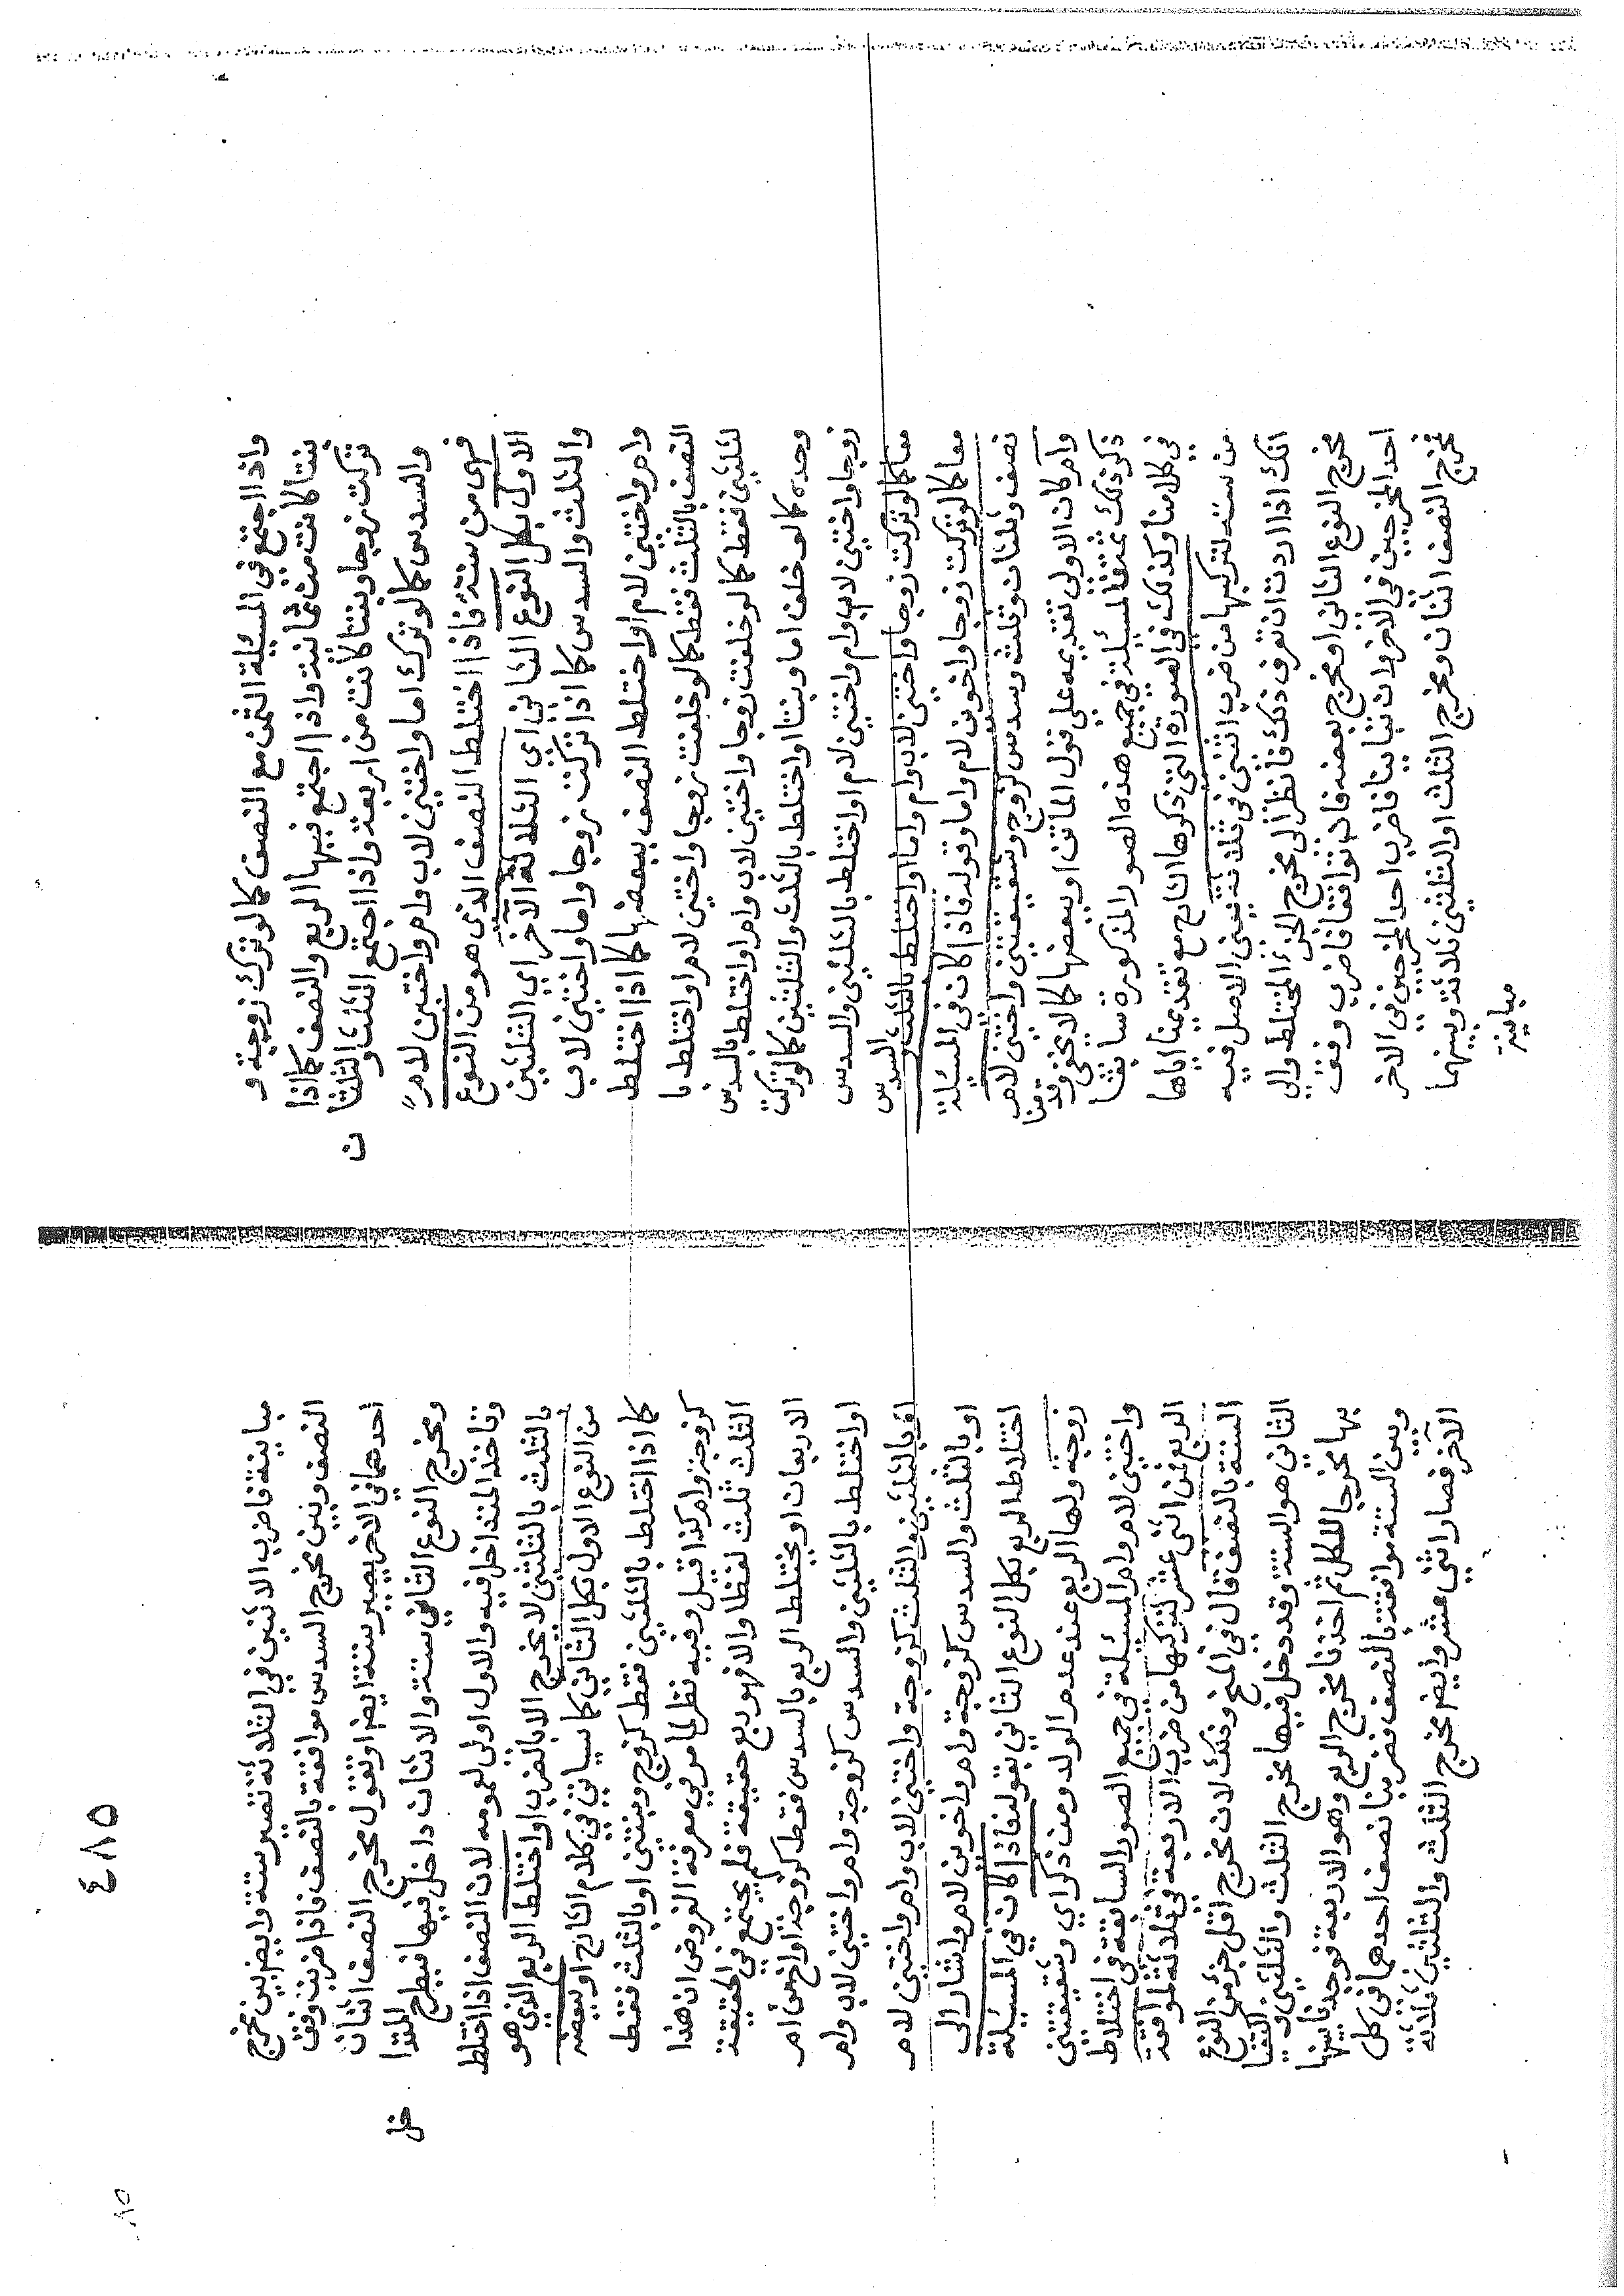 واذا اجتمع في المسيلة الثمن مع النصف كما لو ترك زوجة و
بنتا كانت من ثمانية واذا اجتمع فيها الربع والنصف كما اذا
تركت زوجا وبنتا كانت من اربعة واذا اجتمع الثلث والثلثا
ن
والسدس كما لو ترك اما واختين لاب وام واختين لام
فهي من ستة فاذا اختلط النصف الذي هو من النوع
الاول بكل النوع الثاني اي الثلاثة الآخر اي الثلثين
والثلث والسدس كما اذا تركت زوجا واما واختين لاب
وام واختين لام او اختلط النصف ببعضها كما اذا اختلط
النصف بالثلث فقط كما لو خلفت زوجا واختين لام او اختلط با
لثلثين فقط كما لو خلفت زوجا واختين لاب وام او اختلط بالسدس
وحده كما لو خلف اما وبنتا او اختلط بالثلث والثلثين كما لو تركت
زوجا واختين لاب وام واختين لام او اختلط بالثلثين والسدس
معا كما لو تركت زوجا واختين لاب وام واما او اختلط بالثلث والسدس
معا كما لو تركت زوجا واخوين لام واما وقوله فاذا كان في المسئلة
نصف وثلثان وثلث وسدس كزوج وشقيقتين واختين لام
وام كان الاولى تقديمه على قول الماتن او ببعضها كما لا يخفى وقد قدمنا
ذكر ذلك ثمة فالمسيلة في جميع هذه الصور المذكورة سابقا
في كلامنا وكذلك في الصورة التي ذكرها الشارح مع تقديمنا اياها
من ستة لتركبها من ضرب اثنين في ثلاثة يعني الاصل فيه
انك اذا اردت ان تعرف ذلك فانظر الى مخرج الجزء المختلط والى
مخرج النوع الثاني او مخرج بعضه فان توافقا فاضرب وفق
احد المخرجين في الآخر وان تباينا فاضرب احد المخرجين في الاخر
فمخرج النصف اثنان ومخرج الثلث او الثلثين ثلاثة وبينهما
مباينة
٤٨٥
مباينة فاضرب الاثنين في الثلاثة تصير ستة وايضا بين مخرج
النصف وبين مخرج السدس موافقة بالنصف فاذا ضربت وفق
احدهما في الاخر يصير ستة ايضا او تقول مخرج النصف اثنان
ومخرج النوع الثاني ستة والاثنان داخل فيها فيطرح المتدا
خل
وتأخذ المتداخل فيه والاول اولى لعمومه لان النصف اذا اختلط
بالثلث بالثلثين لا يخرج الا بالضرب او اختلط الربع الذي هو
من النوع الاول بكل الثاني كما سياتي في كلام الشارح او ببعضه
كما اذا اختلط بالثلثين فقط كزوج وبنتين او بالثلث فقط
كزوجة وام كذا قيل وفيه نظر لما مر في معرفة الفروض ان هذا
الثلث ثلث لفظا والا فهو ربع حقيقة فلم يجتمع في الحقيقة
الا ربعان او يختلط الربع بالسدس فقط كزوجة واخ من ام
او اختلط بالثلثين والسدس كزوجة وام واختين لاب وام
او بالثلثين والثلث كزوجة واختين لاب وام واختين لام
او بالثلث والسدس كزوجة وام واخوين لام واشار الى
اختلاط الربع بكل النوع الثاني بقوله فاذا كان في المسيلة
زوجة ولها الربع عند عدم الولد ومن ذكر اي وشقيقتين
واختين لام وام المسيلة في جميع الصور السابقة في اختلاط
الربع فمن اثني عشر لتركبها من ضرب الاربعة في ثلاثة لموافقة
الستة بالنصف قال في المنح وذلك لان مخرج اقل جزء من النوع
الثاني هو الستة وقد دخل فيها مخرج الثلث والثلثين فاكتفينا
بها مخرجا للكل ثم اخذنا مخرج الربع وهو الاربعة فوجدنا بينها
وبين الستة موافقة بالنصف فضربنا نصف احدهما في كل
الآخر فصار اثني عشر وايضا مخرج الثلث والثلثين ثلاثة